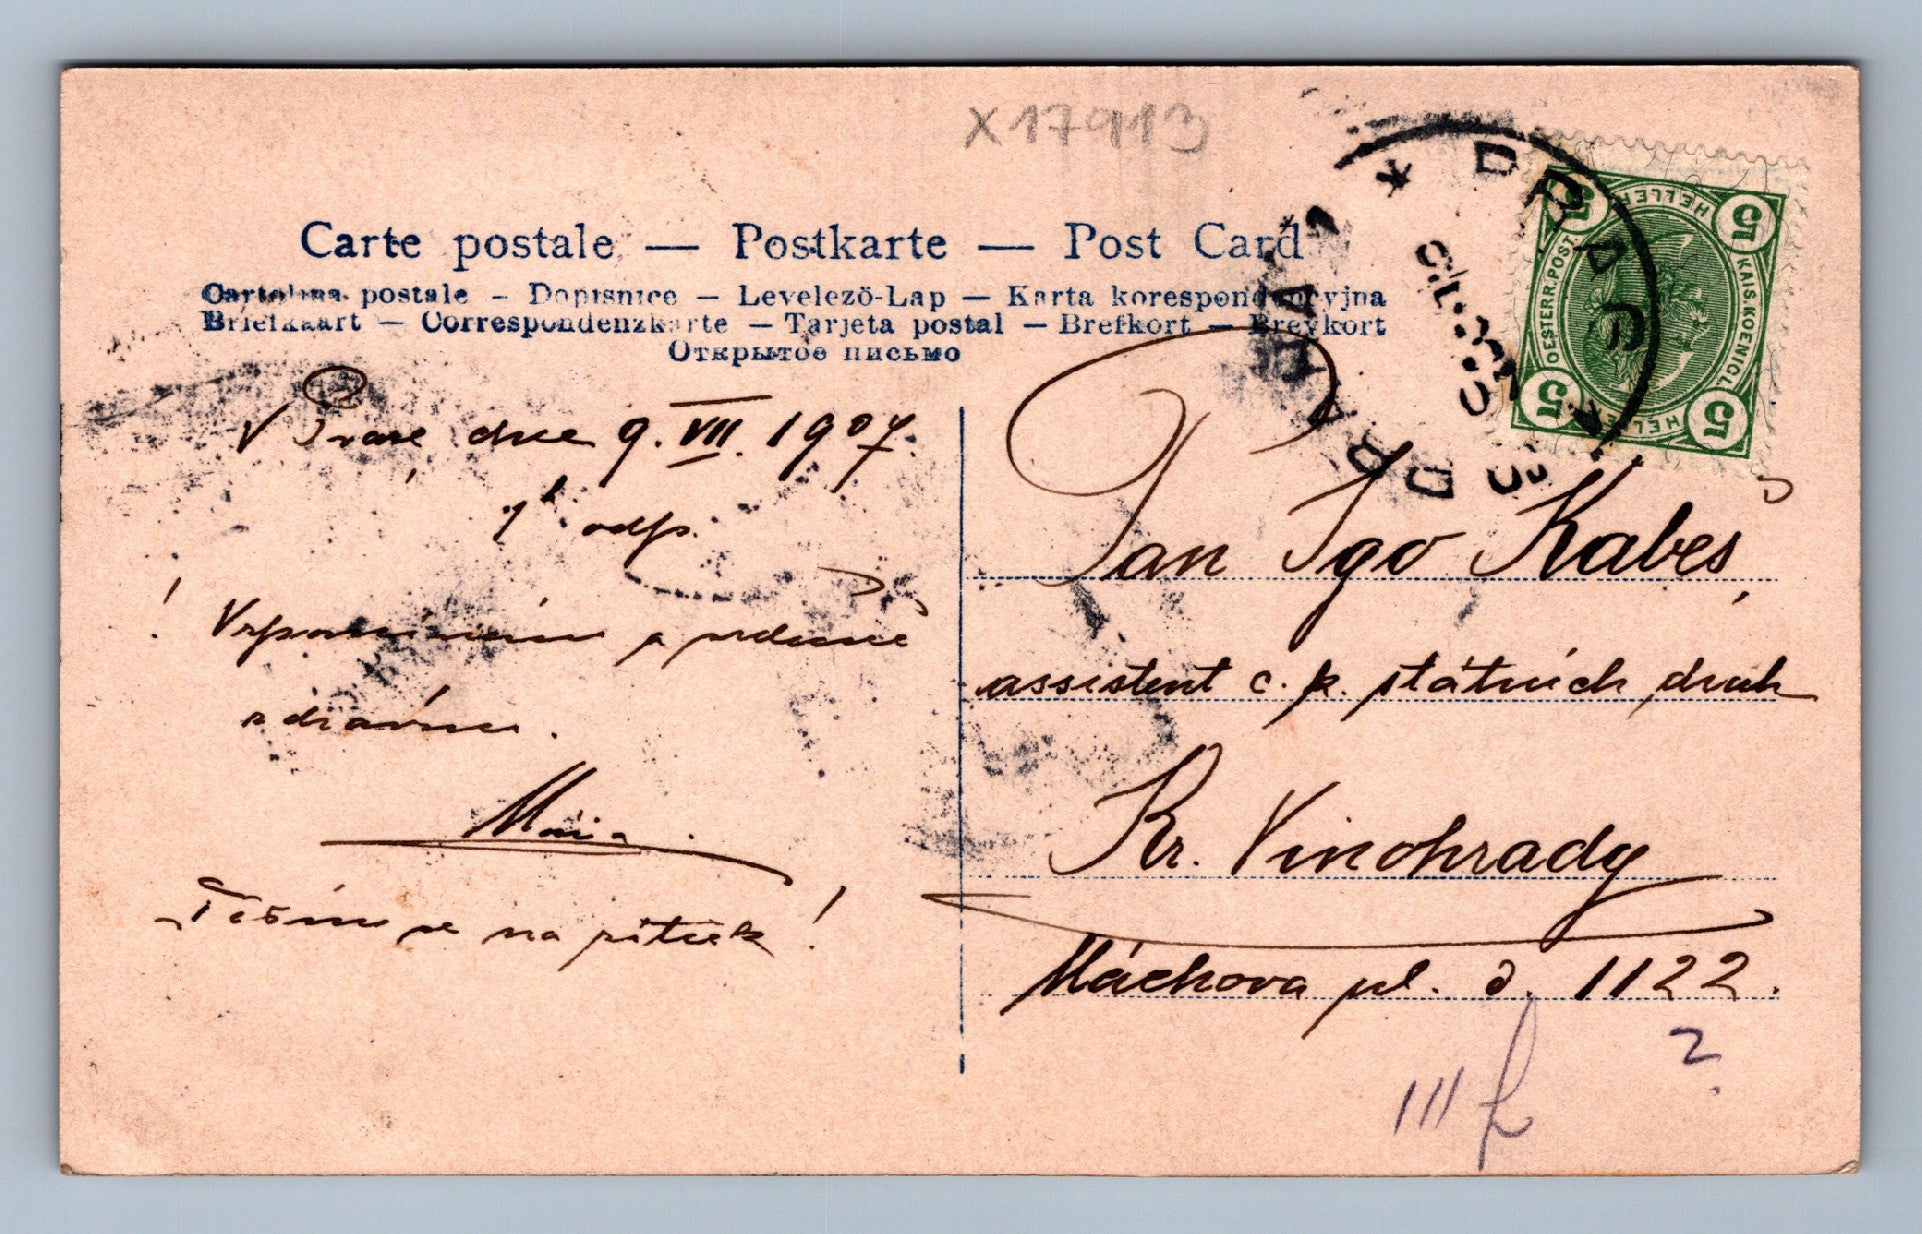 X17913
Carte postale — Postkarte — Post Card
Cartolina postale – Dopisnice – Levelező-Lap – Karta korespondencyjna
Briefkaart – Correspondenzkarte – Tarjeta postal – Brefkort – Brevkort
Открытое письмо
V Praze, dne 9. VII. 1907.
1h odp.
! Vzpomínám a srdečně
zdravím.
Máňa.
Těším se na pátek!
Pan Igo Kabeš,
assistent c. k. státních drah
Kr. Vinohrady
Máchova ul. č. 1122.
III
2
PRAG
PRAHA
5 HELLER 5
KAIS. KOENIGL.
OESTERR. POST
5 HELLER 5